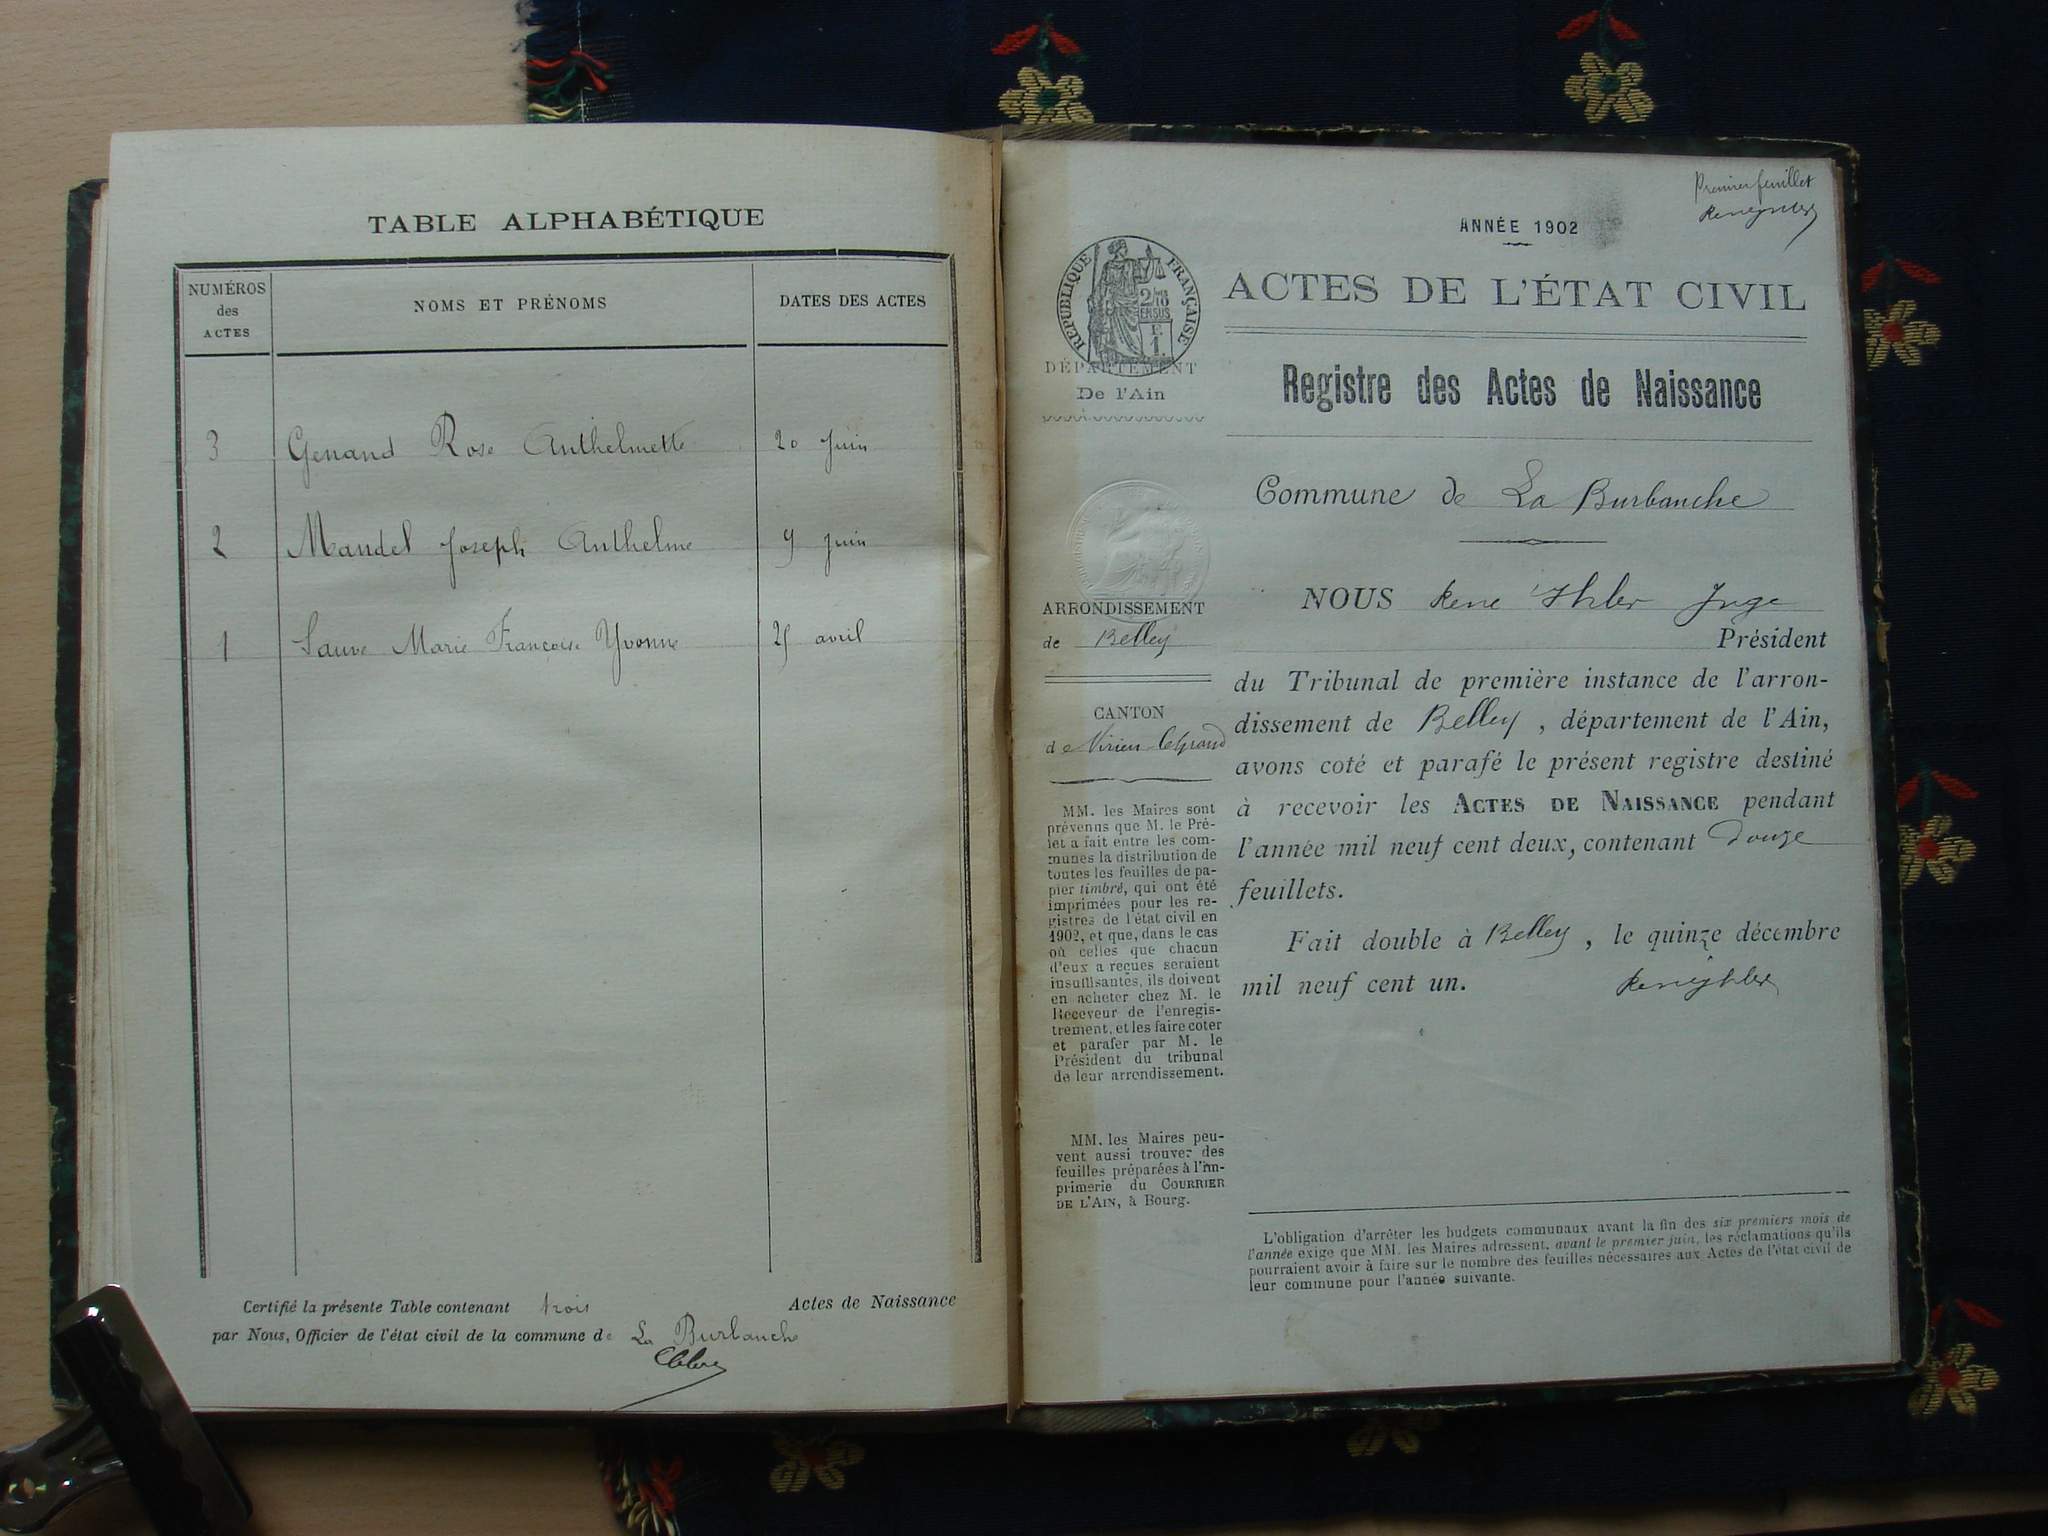 TABLE ALPHABÉTIQUE
NUMÉROS
des
ACTES
NOMS ET PRÉNOMS
DATES DES ACTES
3 Genand Rose Anthelmette 20 juin
2 Mandel Joseph Anthelme 9 juin
1 Sauve Marie Françoise Yvonne 25 avril
Certifié la présente Table contenant trois Actes de Naissance
par Nous, Officier de l'état civil de la commune de La Burbanche
Premier feuillet
ANNÉE 1902
RÉPUBLIQUE FRANÇAISE
ACTES DE L'ÉTAT CIVIL
DÉPARTEMENT
De l'Ain
Registre des Actes de Naissance
Commune de La Burbanche
ARRONDISSEMENT
de Belley
CANTON
de Virieu-le-Grand
MM. les Maires sont
prévenus que M. le Pré-
fet a fait entre les com-
munes la distribution de
toutes les feuilles de pa-
pier timbré, qui ont été
imprimées pour les re-
gistres de l'état civil en
1902, et que, dans le cas
où celles que chacun
d'eux a reçues seraient
insuffisantes, ils doivent
en acheter chez M. le
Receveur de l'enregis-
trement, et les faire coter
et parafer par M. le
Président du tribunal
de leur arrondissement.
MM. les Maires peu-
vent aussi trouver des
feuilles préparées à l'im-
primerie du COURRIER
DE L'AIN, à Bourg.
NOUS René Ihler Juge
Président
du Tribunal de première instance de l'arron-
dissement de Belley, département de l'Ain,
avons coté et parafé le présent registre destiné
à recevoir les ACTES DE NAISSANCE pendant
l'année mil neuf cent deux, contenant Douze
feuillets.
Fait double à Belley, le quinze décembre
mil neuf cent un.
L'obligation d'arrêter les budgets communaux avant la fin des six premiers mois de
l'année exige que MM. les Maires adressent, avant le premier juin, les réclamations qu'ils
pourraient avoir à faire sur le nombre des feuilles nécessaires aux Actes de l'état civil de
leur commune pour l'année suivante.